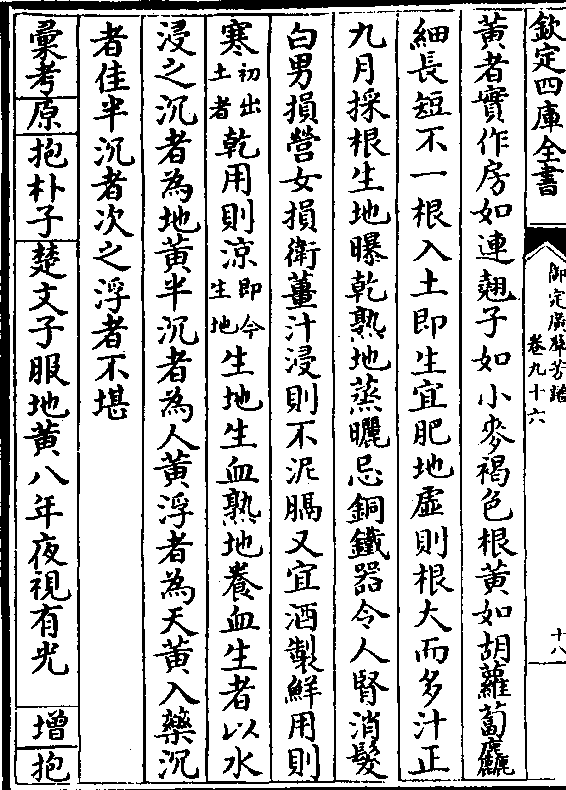 欽定四庫全書
御定廣羣芳譜
卷九十六
十八
黃者實作房如連翹子如小麥褐色根黃如胡蘿蔔麤
細長短不一根入土即生宜肥地虛則根大而多汁正
九月採根生地曝乾熟地蒸曬忌銅鐵器令人腎消髮
白男損營女損衛薑汁浸則不泥膈又宜酒製鮮用則
寒初出土者乾用則涼即今生地生地生血熟地養血生者以水
浸之沉者為地黃半沉者為人黃浮者為天黃入藥沉
者佳半沉者次之浮者不堪
彚考原抱朴子楚文子服地黃八年夜視有光 增抱